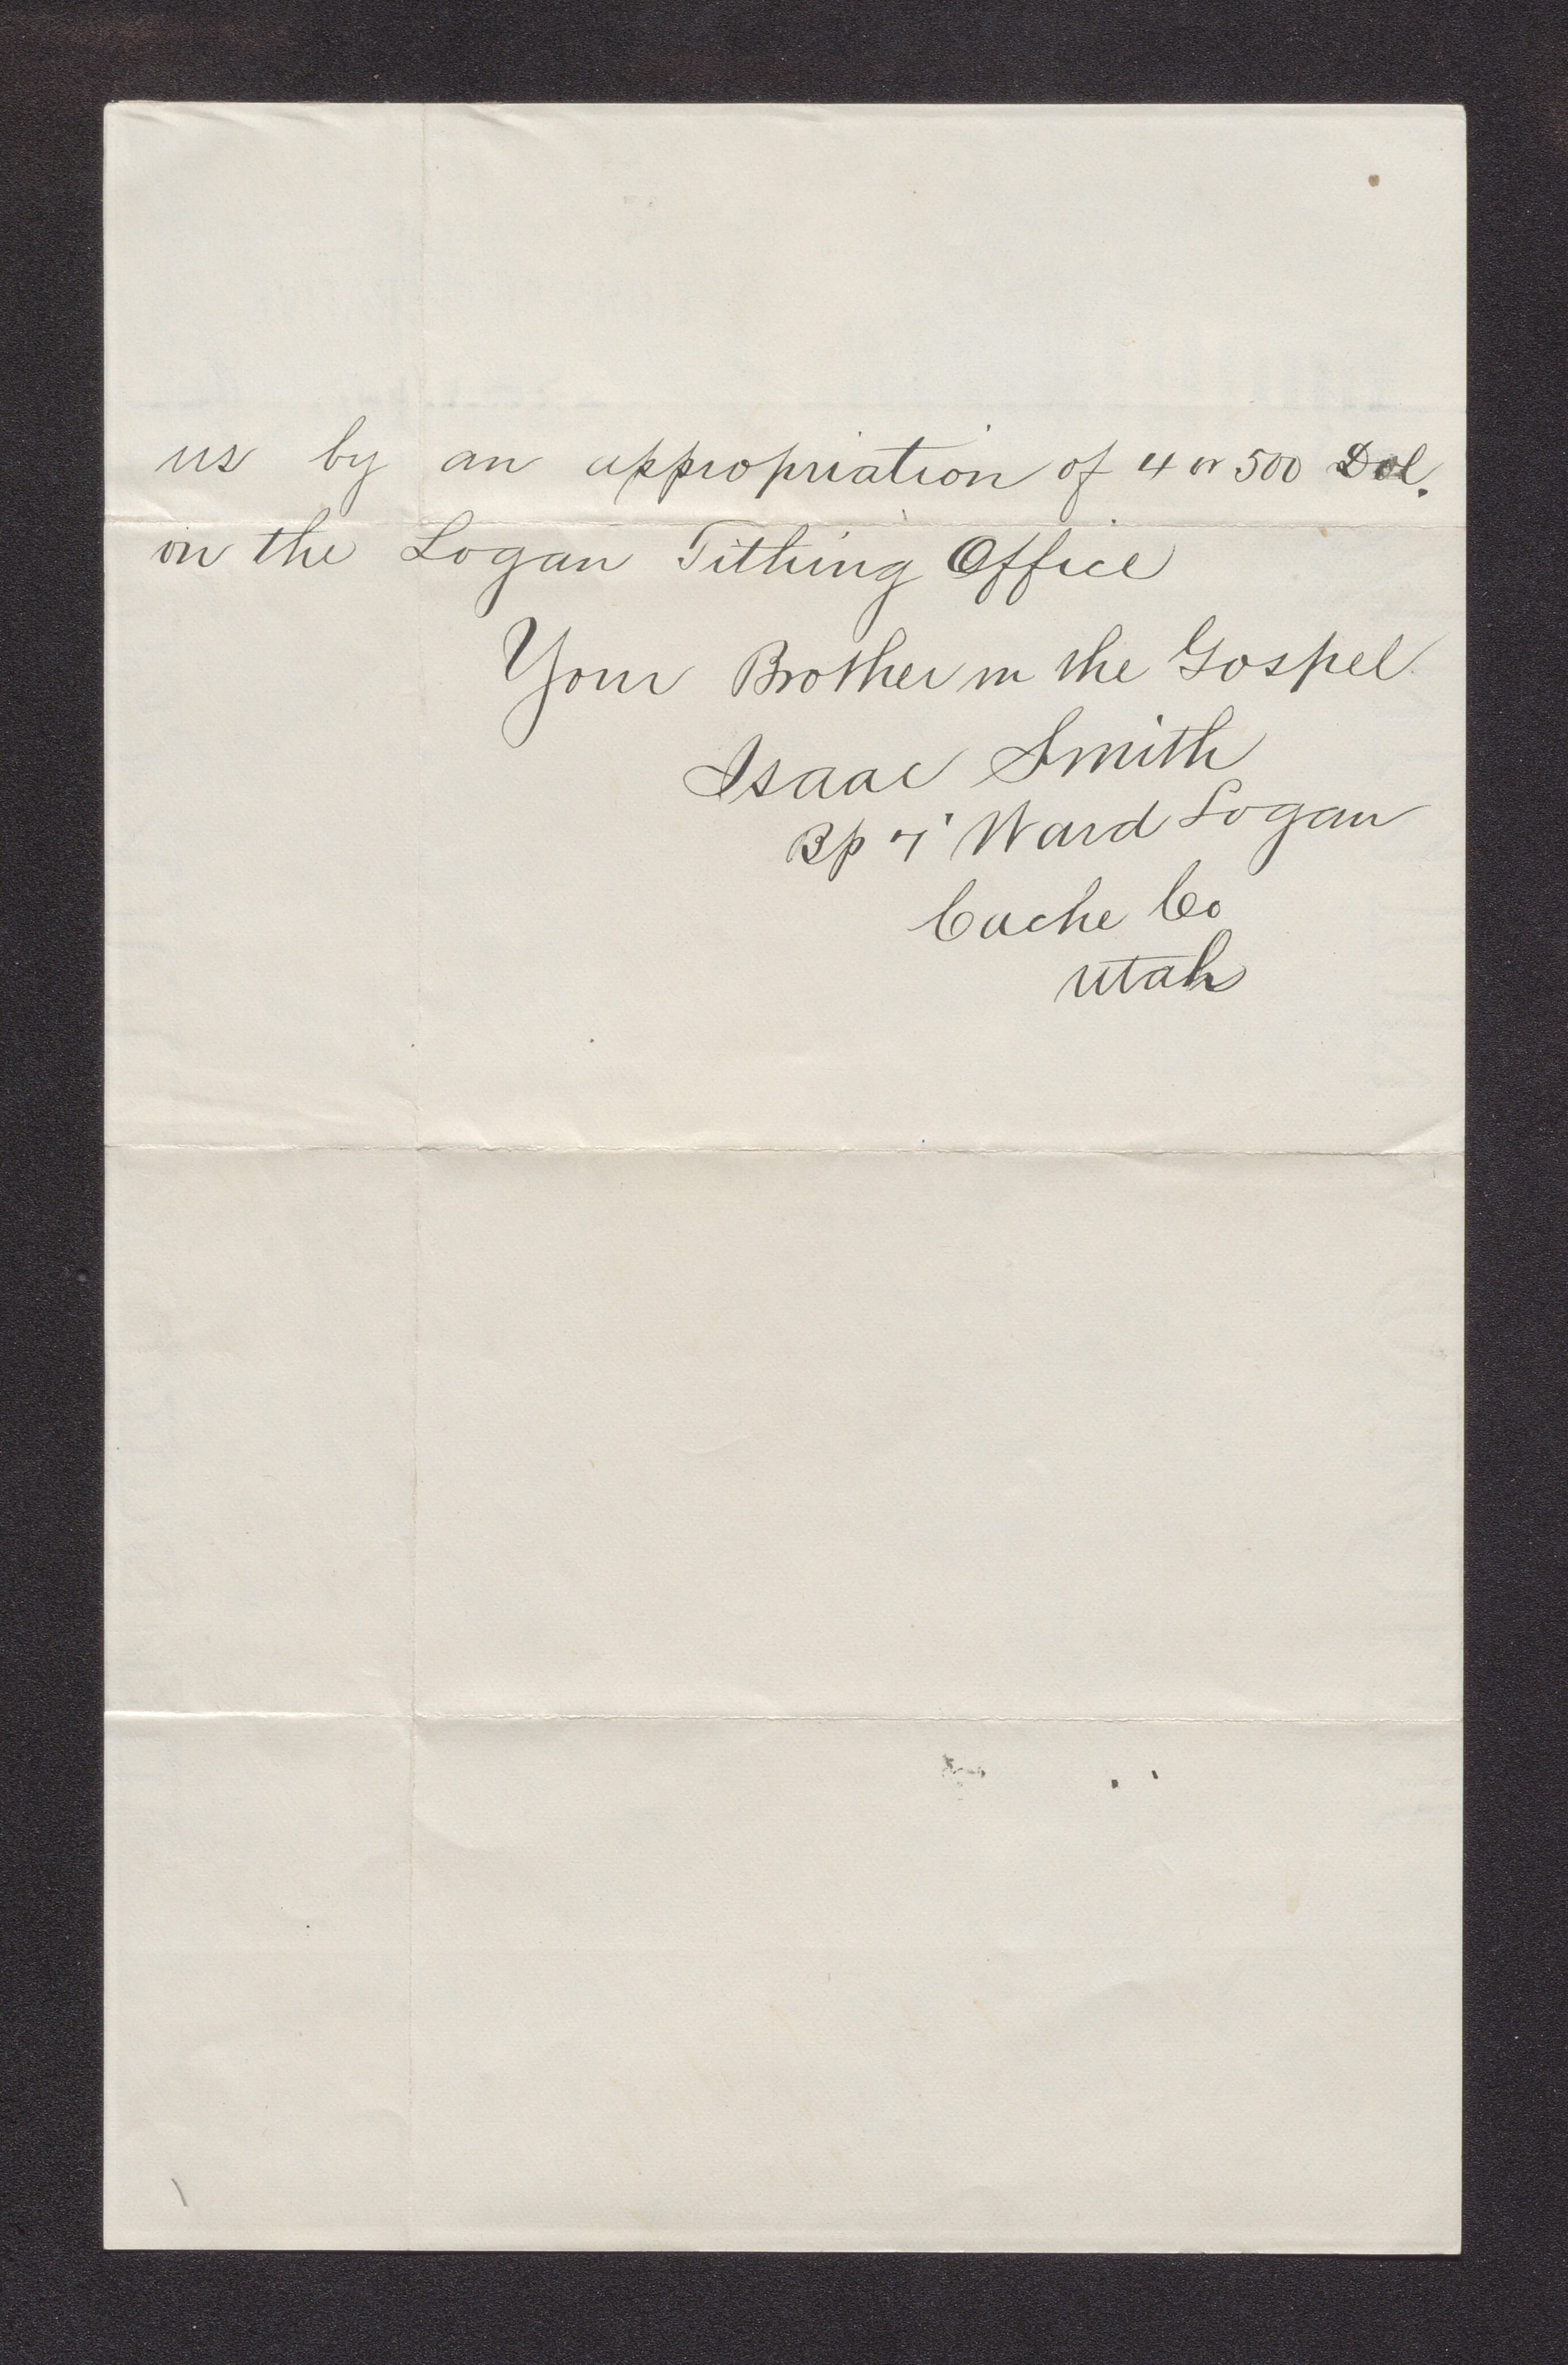 us by an appropriation of 4 or 500 Dol.
on the Logan Tithing Office
Your Brother in the Gospel
Isaac Smith
Bp 7' Ward Logan
Cache Co
Utah